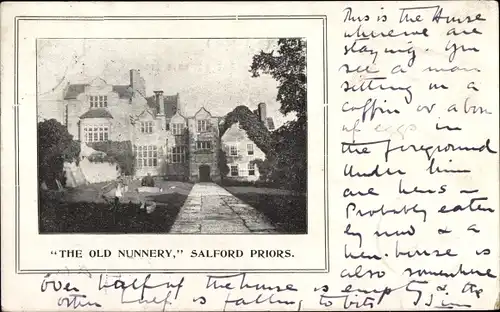 This is the House
where we are
staying. You
see a man
sitting on a
coffin or a box
of eggs in
the foreground
Under him
are hens -
Probably eaten
by now & a
hen-house is
also somewhere
"THE OLD NUNNERY," SALFORD PRIORS.
over half of the house is empty & the
other half is falling to bits